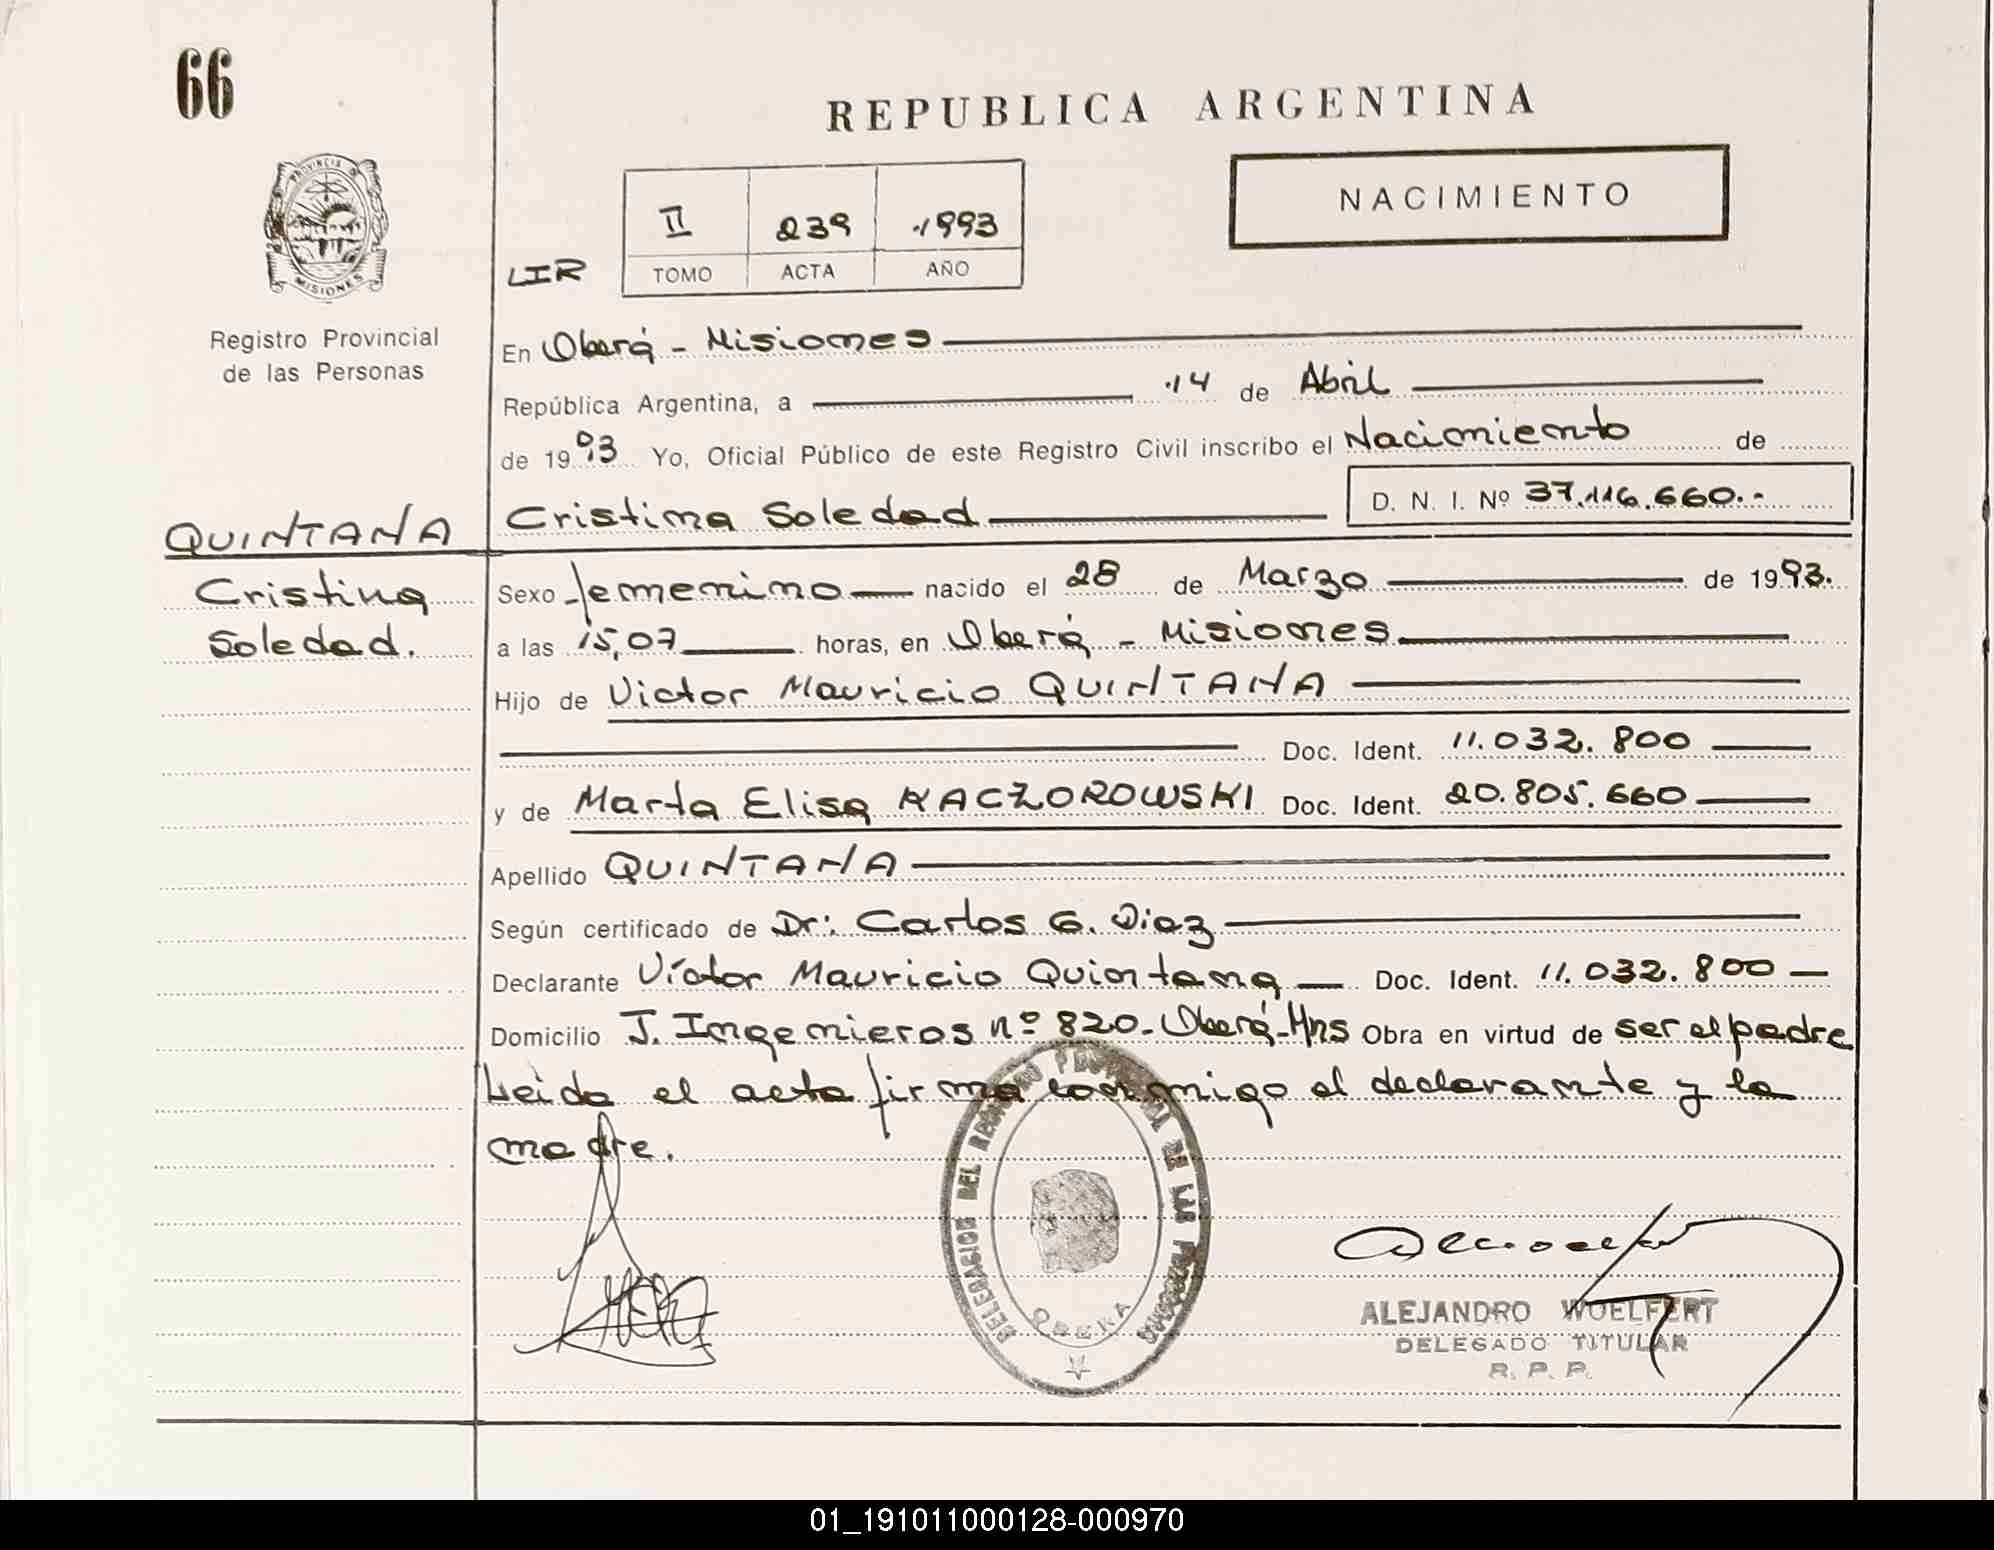 66
REPUBLICA ARGENTINA
PROVINCIA DE
MISIONES
NACIMIENTO
II 239 1993
LIR TOMO ACTA AÑO
Registro Provincial
de las Personas
En Oberá - Misiones
República Argentina, a 14 de Abril
de 1993 Yo, Oficial Público de este Registro Civil inscribo el Nacimiento de
D. N. I. Nº 37.116.660.-
QUINTANA Cristina Soledad
Cristina Sexo femenino nacido el 28 de Marzo de 1993.
Soledad. a las 15,07 horas, en Oberá - Misiones
Hijo de Victor Mauricio QUINTANA
Doc. Ident. 11.032.800
y de Marta Elisa KACZOROWSKI Doc. Ident. 20.805.660
Apellido QUINTANA
Según certificado de Dr: Carlos G. Diaz
Declarante Víctor Mauricio Quintana Doc. Ident. 11.032.800
Domicilio J. Ingenieros nº 820- Oberá-Mns Obra en virtud de ser el padre
Leida el acta firma conmigo el declarante y la
madre.
DELEGACION DEL REGISTRO PROVINCIAL DE LAS PERSONAS
OBERA
ALEJANDRO WOELFERT
DELEGADO TITULAR
R. P. P.
01_191011000128-000970